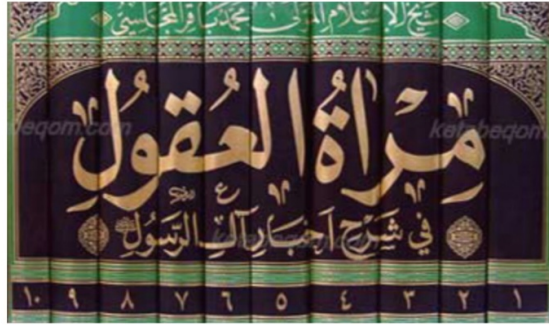 شيخ الإسلام المولى محمد باقر المجلسي
مرآة العقول
في شرح أخبار آل الرسول
١٠ ٩ ٨ ٧ ٦ ٥ ٤ ٣ ٢ ١
ketabeqom.com